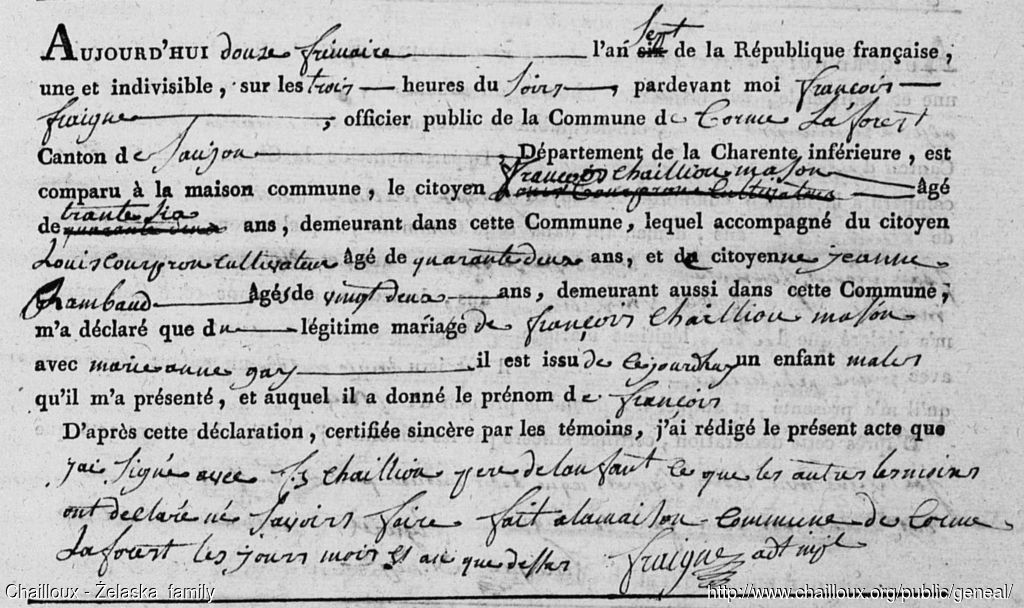 Aujourd'hui douze frimaire l'an sept de la République française,
une et indivisible, sur les trois heures du soirs, pardevant moi françois
fraigne, officier public de la Commune de Corme La forest
Canton de Saujon, Département de la Charente inférieure, est
comparu à la maison commune, le citoyen françois chailliou mason âgé
de trante six ans, demeurant dans cette Commune, lequel accompagné du citoyen
Louis Courpron Cultivateur âgé de quarante deux ans, et de citoyenne jeanne
Rambaud âgés de vingt deux ans, demeurant aussi dans cette Commune,
m'a déclaré que du légitime mariage de françois chailliou mason
avec marie anne gay il est issu de cejourdhuy un enfant males
qu'il m'a présenté, et auquel il a donné le prénom de françois
D'après cette déclaration, certifiée sincère par les témoins, j'ai rédigé le présent acte que
jai signé avec fs chailliou pere de lanfant ce que les autres temoins
ont declaré né savoirs faire fait a lamaison commune de Corme
Laforest les jours mois et an que dessus fraigne
Chailloux - Żelaska family http://www.chailloux.org/public/geneal/